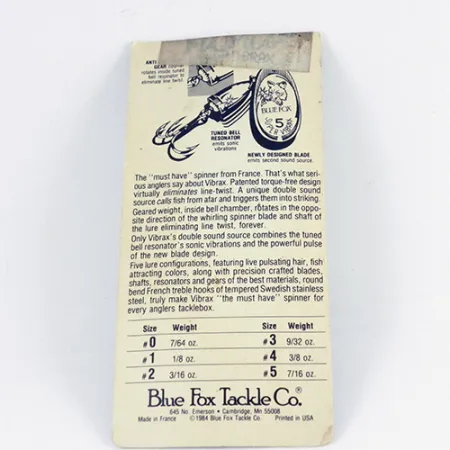 ANTI
GEAR
rotates inside tuned
bell resonator to
eliminate line twist.
BLUE FOX
5
SUPER VIBRAX
TUNED BELL
RESONATOR
emits sonic
vibrations
NEWLY DESIGNED BLADE
emits second sound source.
The "must have" spinner from France. That's what seri-
ous anglers say about Vibrax. Patented torque-free design
virtually eliminates line-twist. A unique double sound
source calls fish from afar and triggers them into striking.
Geared weight, inside bell chamber, rotates in the oppo-
site direction of the whirling spinner blade and shaft of
the lure eliminating line twist, forever.
Only Vibrax's double sound source combines the tuned
bell resonator's sonic vibrations and the powerful pulse
of the new blade design.
Five lure configurations, featuring live pulsating hair, fish
attracting colors, along with precision crafted blades,
shafts, resonators and gears of the best materials, round
bend French treble hooks of tempered Swedish stainless
steel, truly make Vibrax "the must have" spinner for
every anglers tacklebox.
Size Weight Size Weight
#0 7/64 oz. #3 9/32 oz.
#1 1/8 oz. #4 3/8 oz.
#2 3/16 oz. #5 7/16 oz.
Blue Fox Tackle Co.®
645 No. Emerson • Cambridge, Mn 55008
Made in France ©1984 Blue Fox Tackle Co. Printed in USA